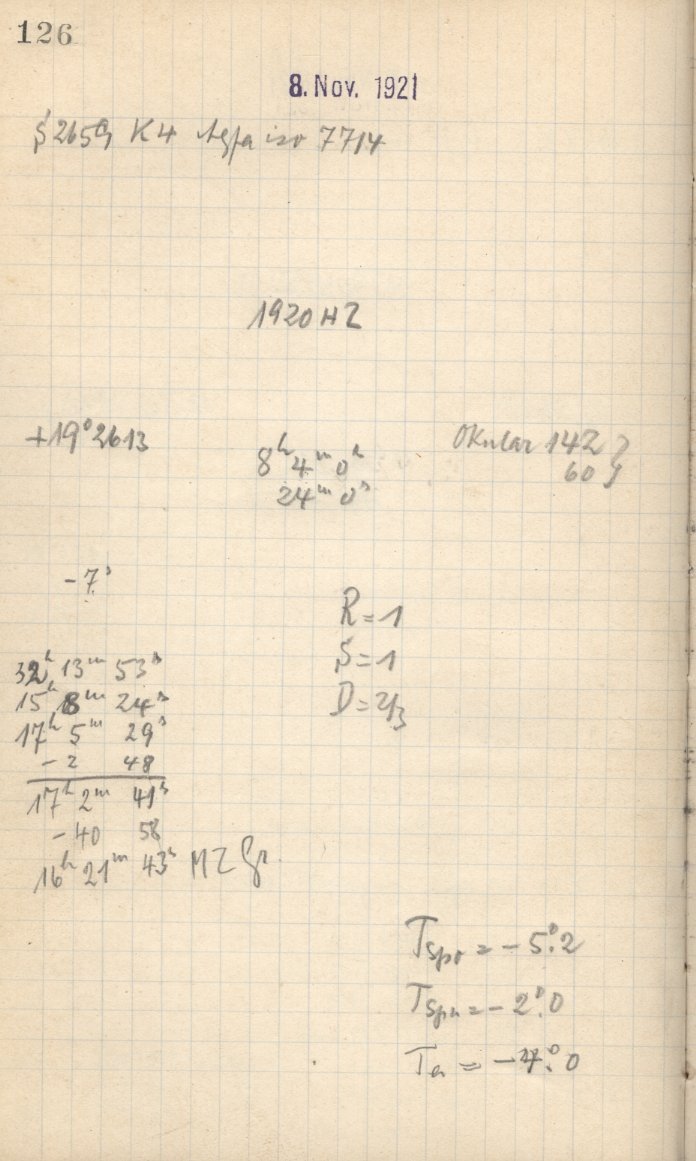 126
8. Nov. 1921
S 2659 K4 Agfa iso 7714
1920 HZ
+19° 2613
8h 4m 0s
24m 0s
Okular 142
60
-7s
R = 1
S = 1
D = 2/3
32h 13m 53s
15h 8m 24s
17h 5m 29s
- 2 48
17h 2m 41s
- 40 58
16h 21m 43s MZ Gr.
Tspo = - 5°.2
Tspu = - 2°.0
Ta = - 4°.0